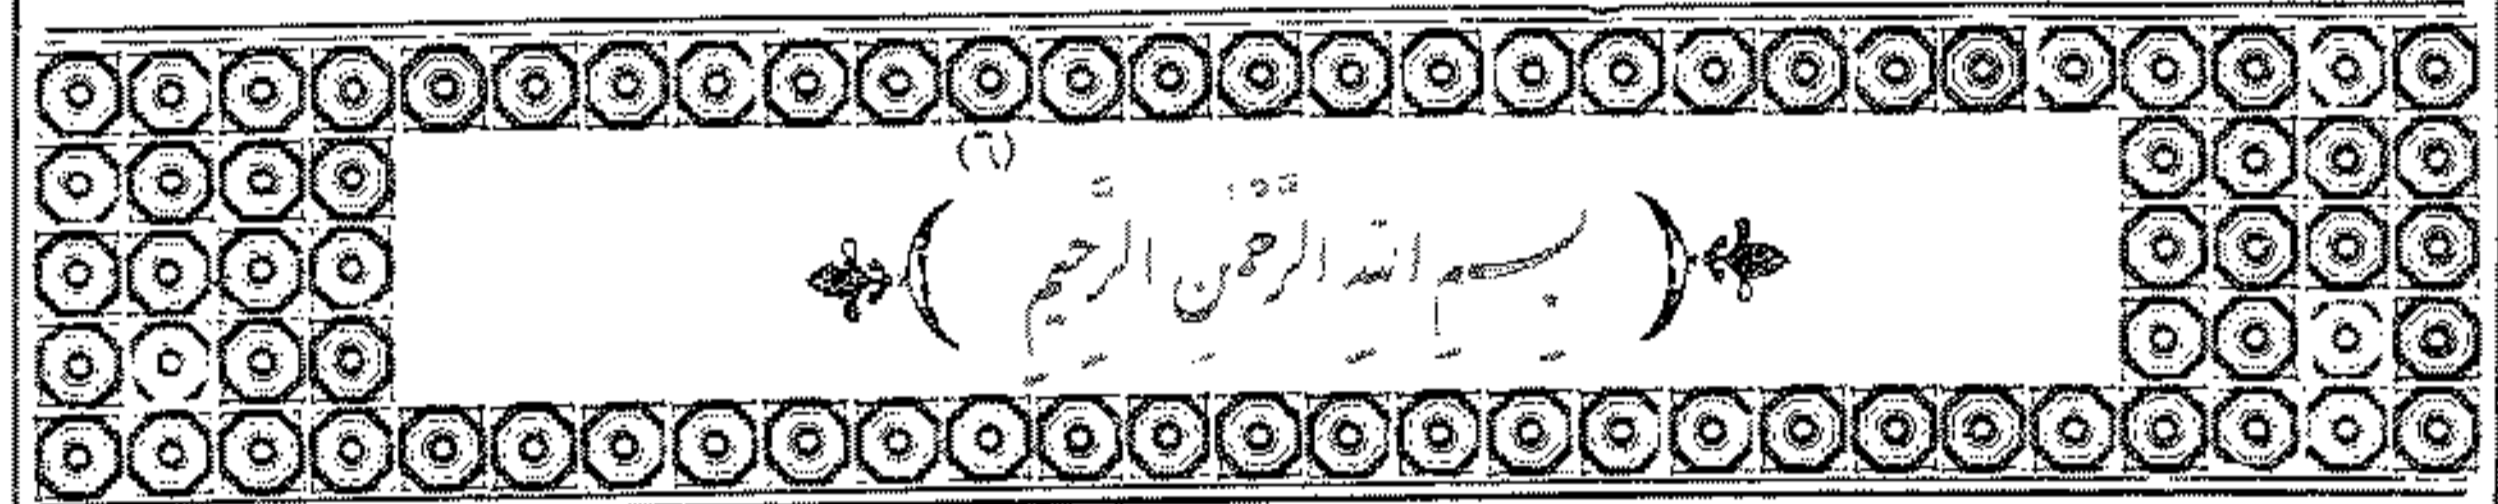 (٦)
(بسم الله الرحمن الرحيم)